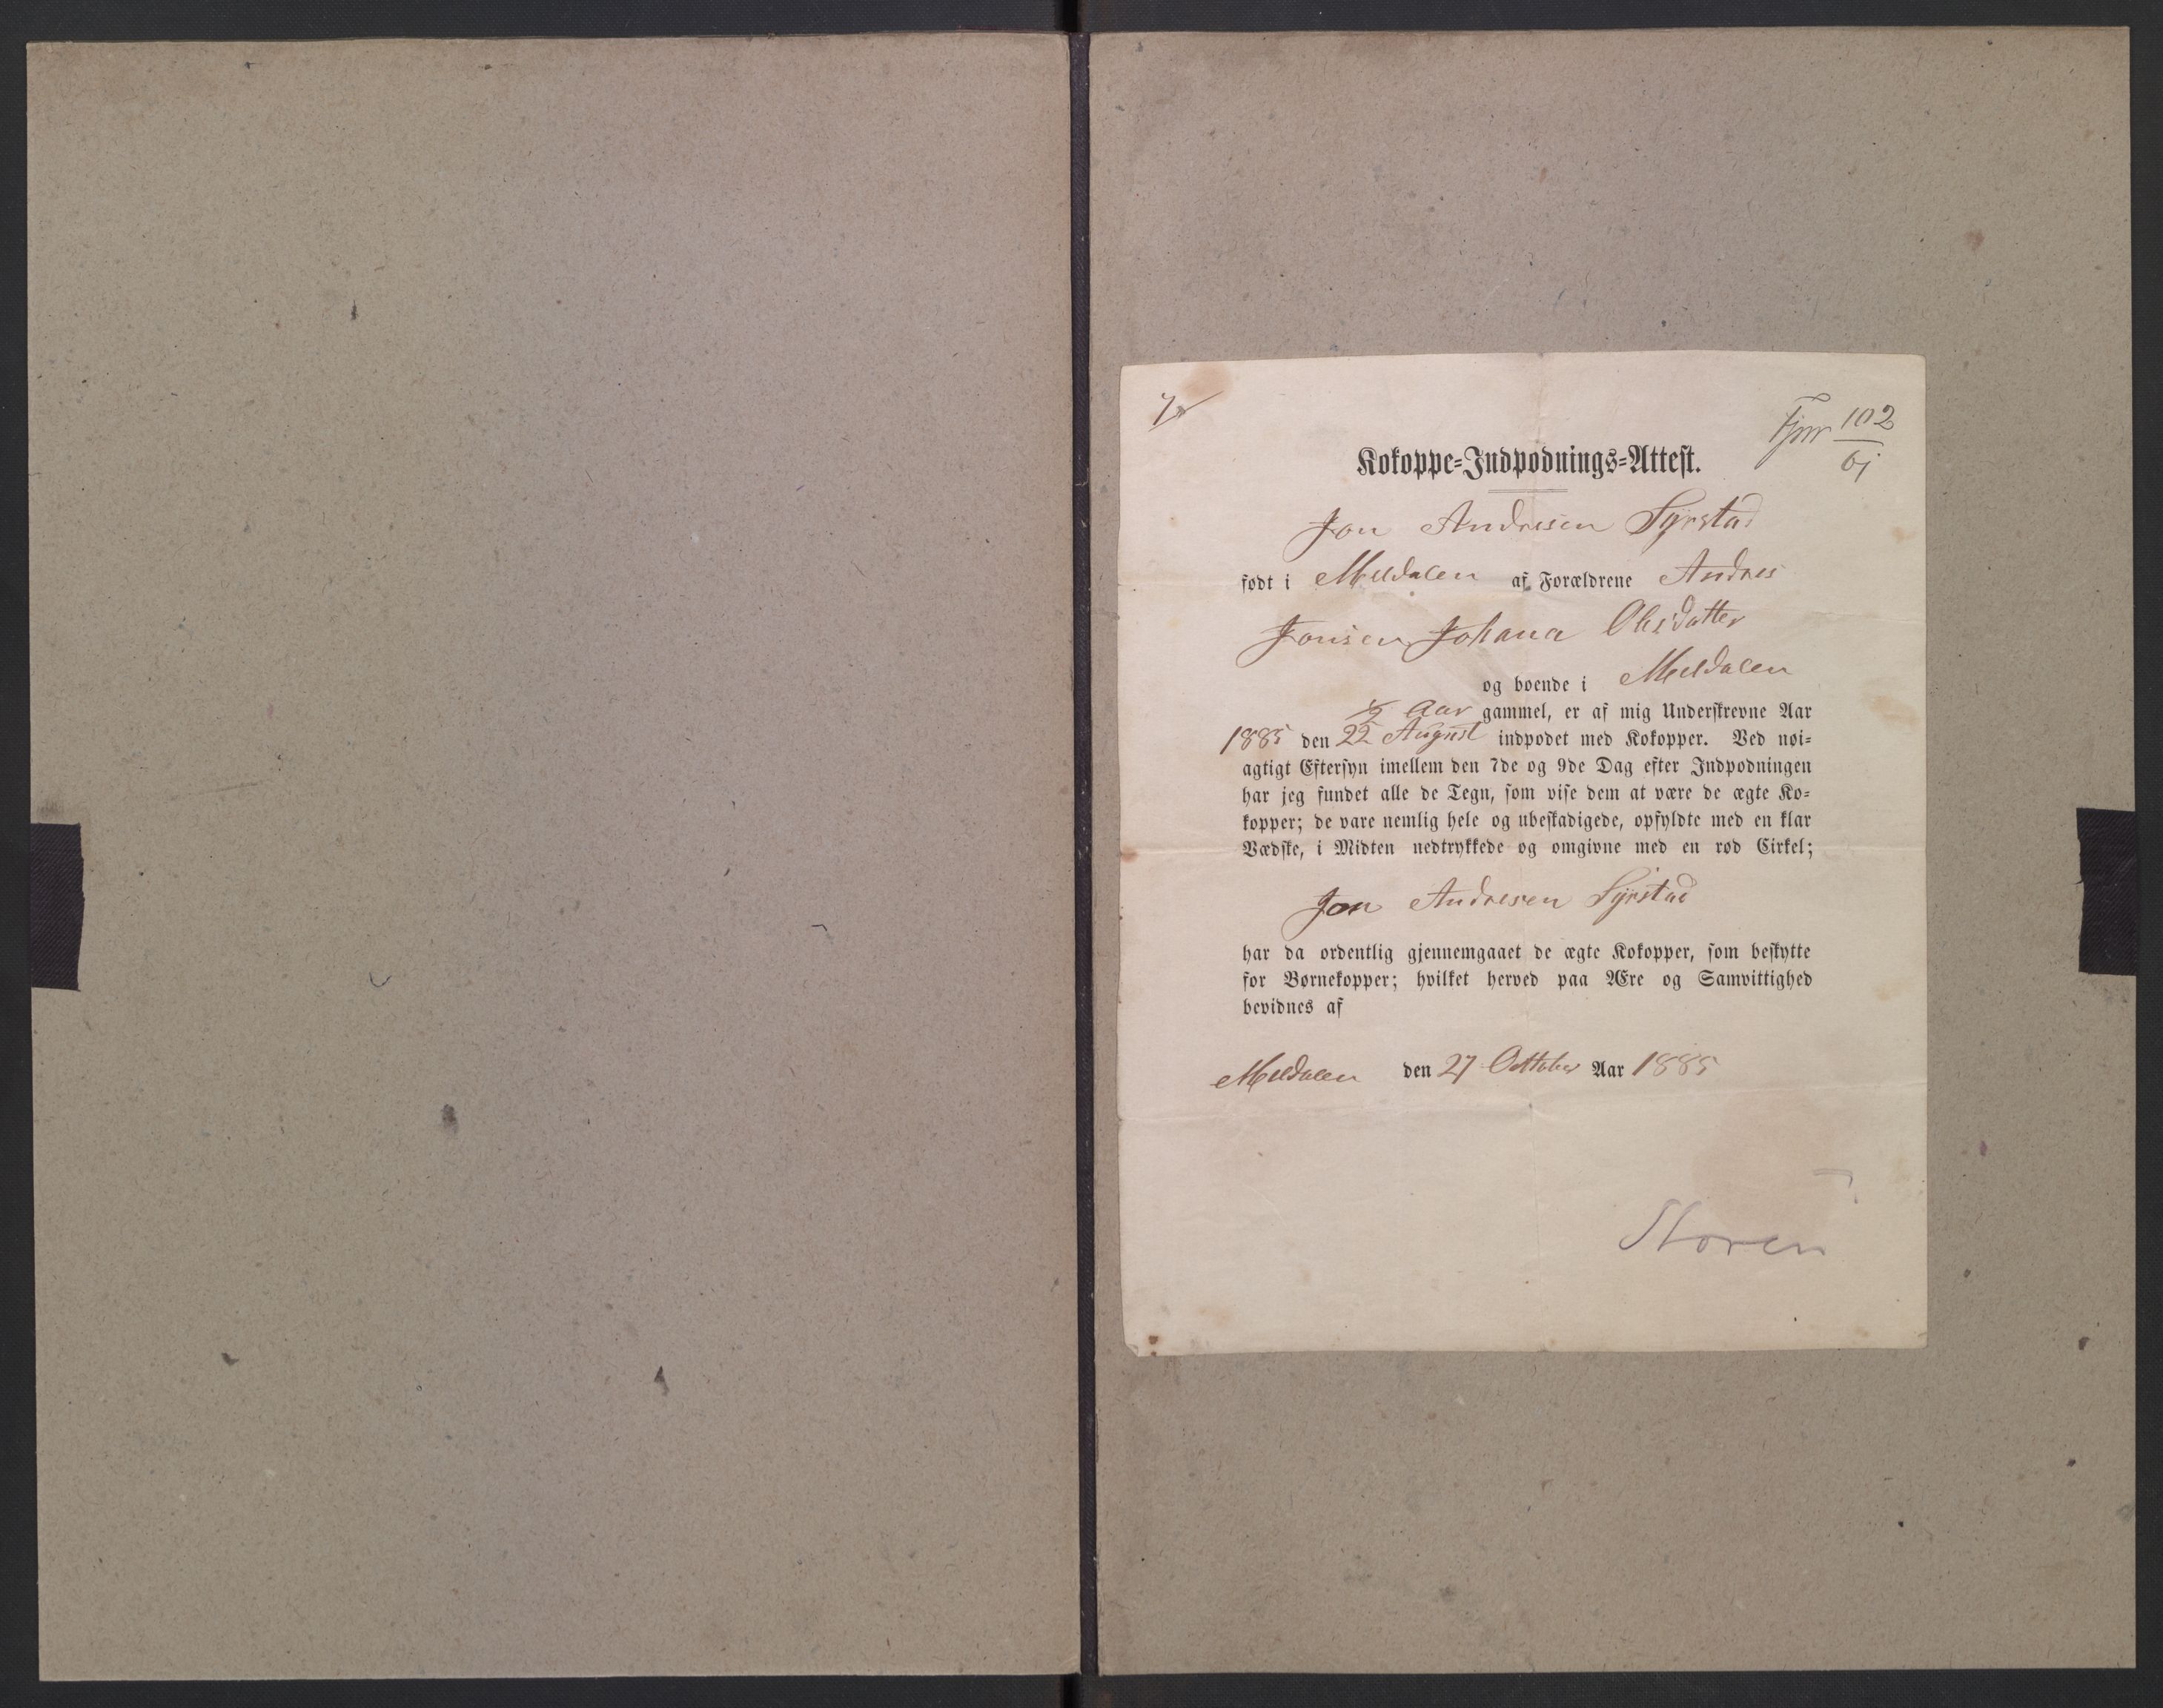 102
Kokoppe-Indpodnings-Attest.
Jon Andresen Syrstad
født i Meldalen af Forældrene Andres
Jonsen Johana Olesdatter
og boende i Meldalen
½ Aar gammel, er af mig Underskrevne Aar
1885 den 22 August indpodet med Kokopper. Ved nøi-
agtigt Eftersyn imellem den 7de og 9de Dag efter Indpodningen
har jeg fundet alle de Tegn, som vise dem at være de ægte Ko-
kopper; de vare nemlig hele og ubeskadigede, opfyldte med en klar
Vædske, i Midten nedtrykkede og omgivne med en rød Cirkel;
Jon Andresen Syrstad
har da ordentlig gjennemgaaet de ægte Kokopper, som beskytte
for Børnekopper; hvilket herved paa Ære og Samvittighed
bevidnes af
Meldalen den 27 Oktober Aar 1885
Støren